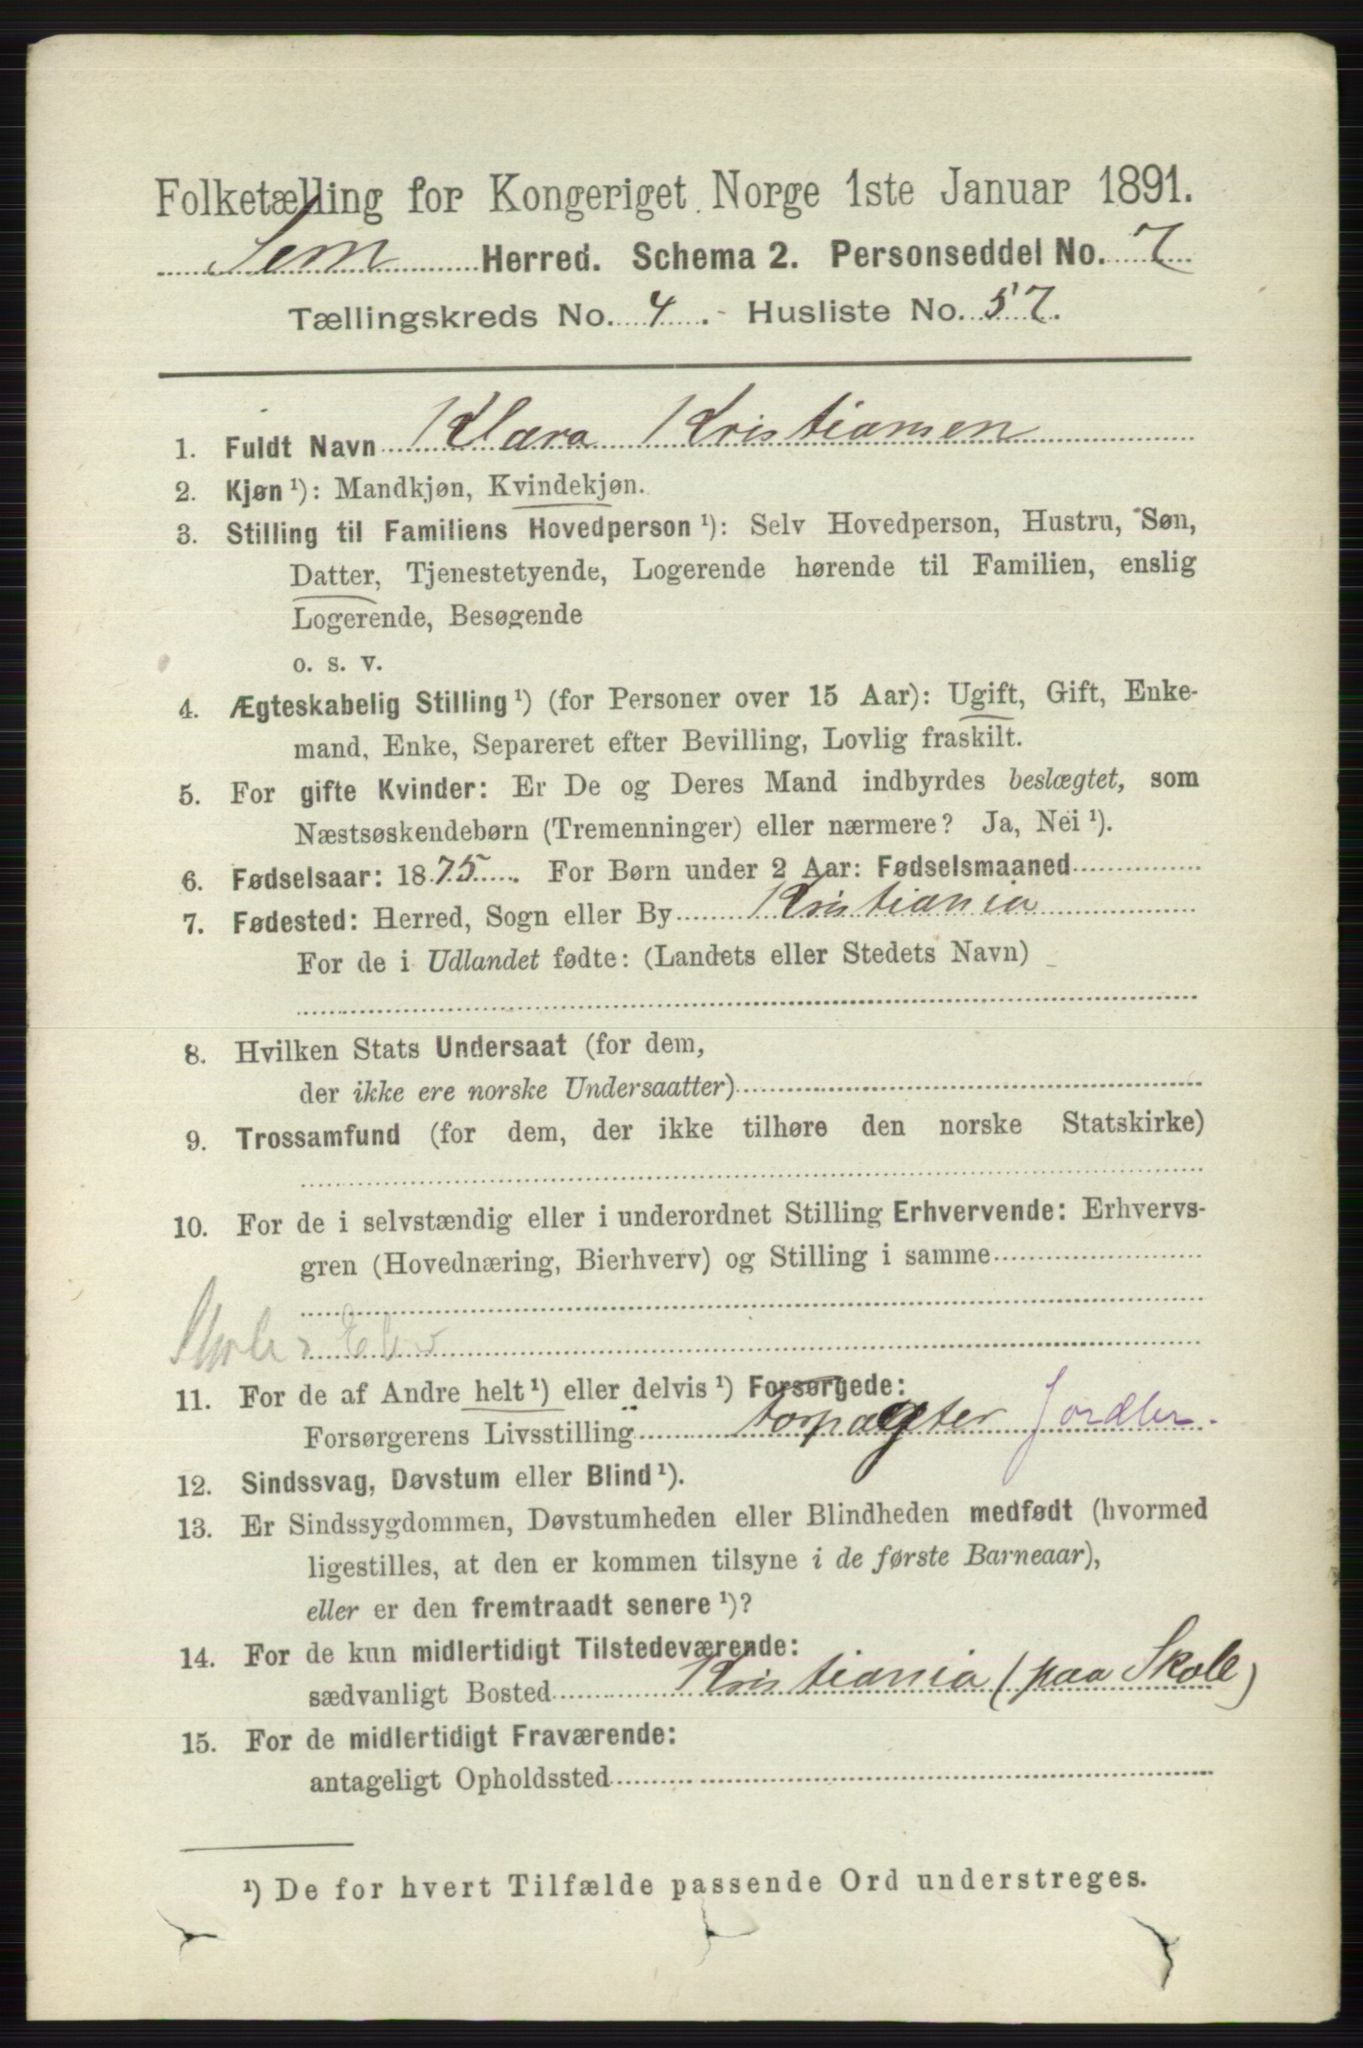 Folketælling for Kongeriget Norge 1ste Januar 1891.
Sem Herred. Schema 2. Personseddel No. 7
Tællingskreds No. 4. - Husliste No. 57.
1. Fuldt Navn Klara Kristiansen
2. Kjøn ¹): Mandkjøn, Kvindekjøn.
3. Stilling til Familiens Hovedperson ¹): Selv Hovedperson, Hustru, Søn,
Datter, Tjenestetyende, Logerende hørende til Familien, enslig
Logerende, Besøgende
o. s. v.
4. Ægteskabelig Stilling ¹) (for Personer over 15 Aar): Ugift, Gift, Enke-
mand, Enke, Separeret efter Bevilling, Lovlig fraskilt.
5. For gifte Kvinder: Er De og Deres Mand indbyrdes beslægtet, som
Næstsøskendebørn (Tremenninger) eller nærmere? Ja, Nei ¹).
6. Fødselsaar: 1875. For Børn under 2 Aar: Fødselsmaaned
7. Fødested: Herred, Sogn eller By Kristiania
For de i Udlandet fødte: (Landets eller Stedets Navn)
8. Hvilken Stats Undersaat (for dem,
der ikke ere norske Undersaatter)
9. Trossamfund (for dem, der ikke tilhøre den norske Statskirke)
10. For de i selvstændig eller i underordnet Stilling Erhvervende: Erhvervs-
gren (Hovednæring, Bierhverv) og Stilling i samme
Skole Elev
11. For de af Andre helt ¹) eller delvis ¹) Forsørgede:
Forsørgerens Livsstilling Forpagter Jordbr.
12. Sindssvag, Døvstum eller Blind ¹).
13. Er Sindssygdommen, Døvstumheden eller Blindheden medfødt (hvormed
ligestilles, at den er kommen tilsyne i de første Barneaar),
eller er den fremtraadt senere ¹)?
14. For de kun midlertidigt Tilstedeværende:
sædvanligt Bosted Kristiania (paa Skole)
15. For de midlertidigt Fraværende:
antageligt Opholdssted
¹) De for hvert Tilfælde passende Ord understreges.